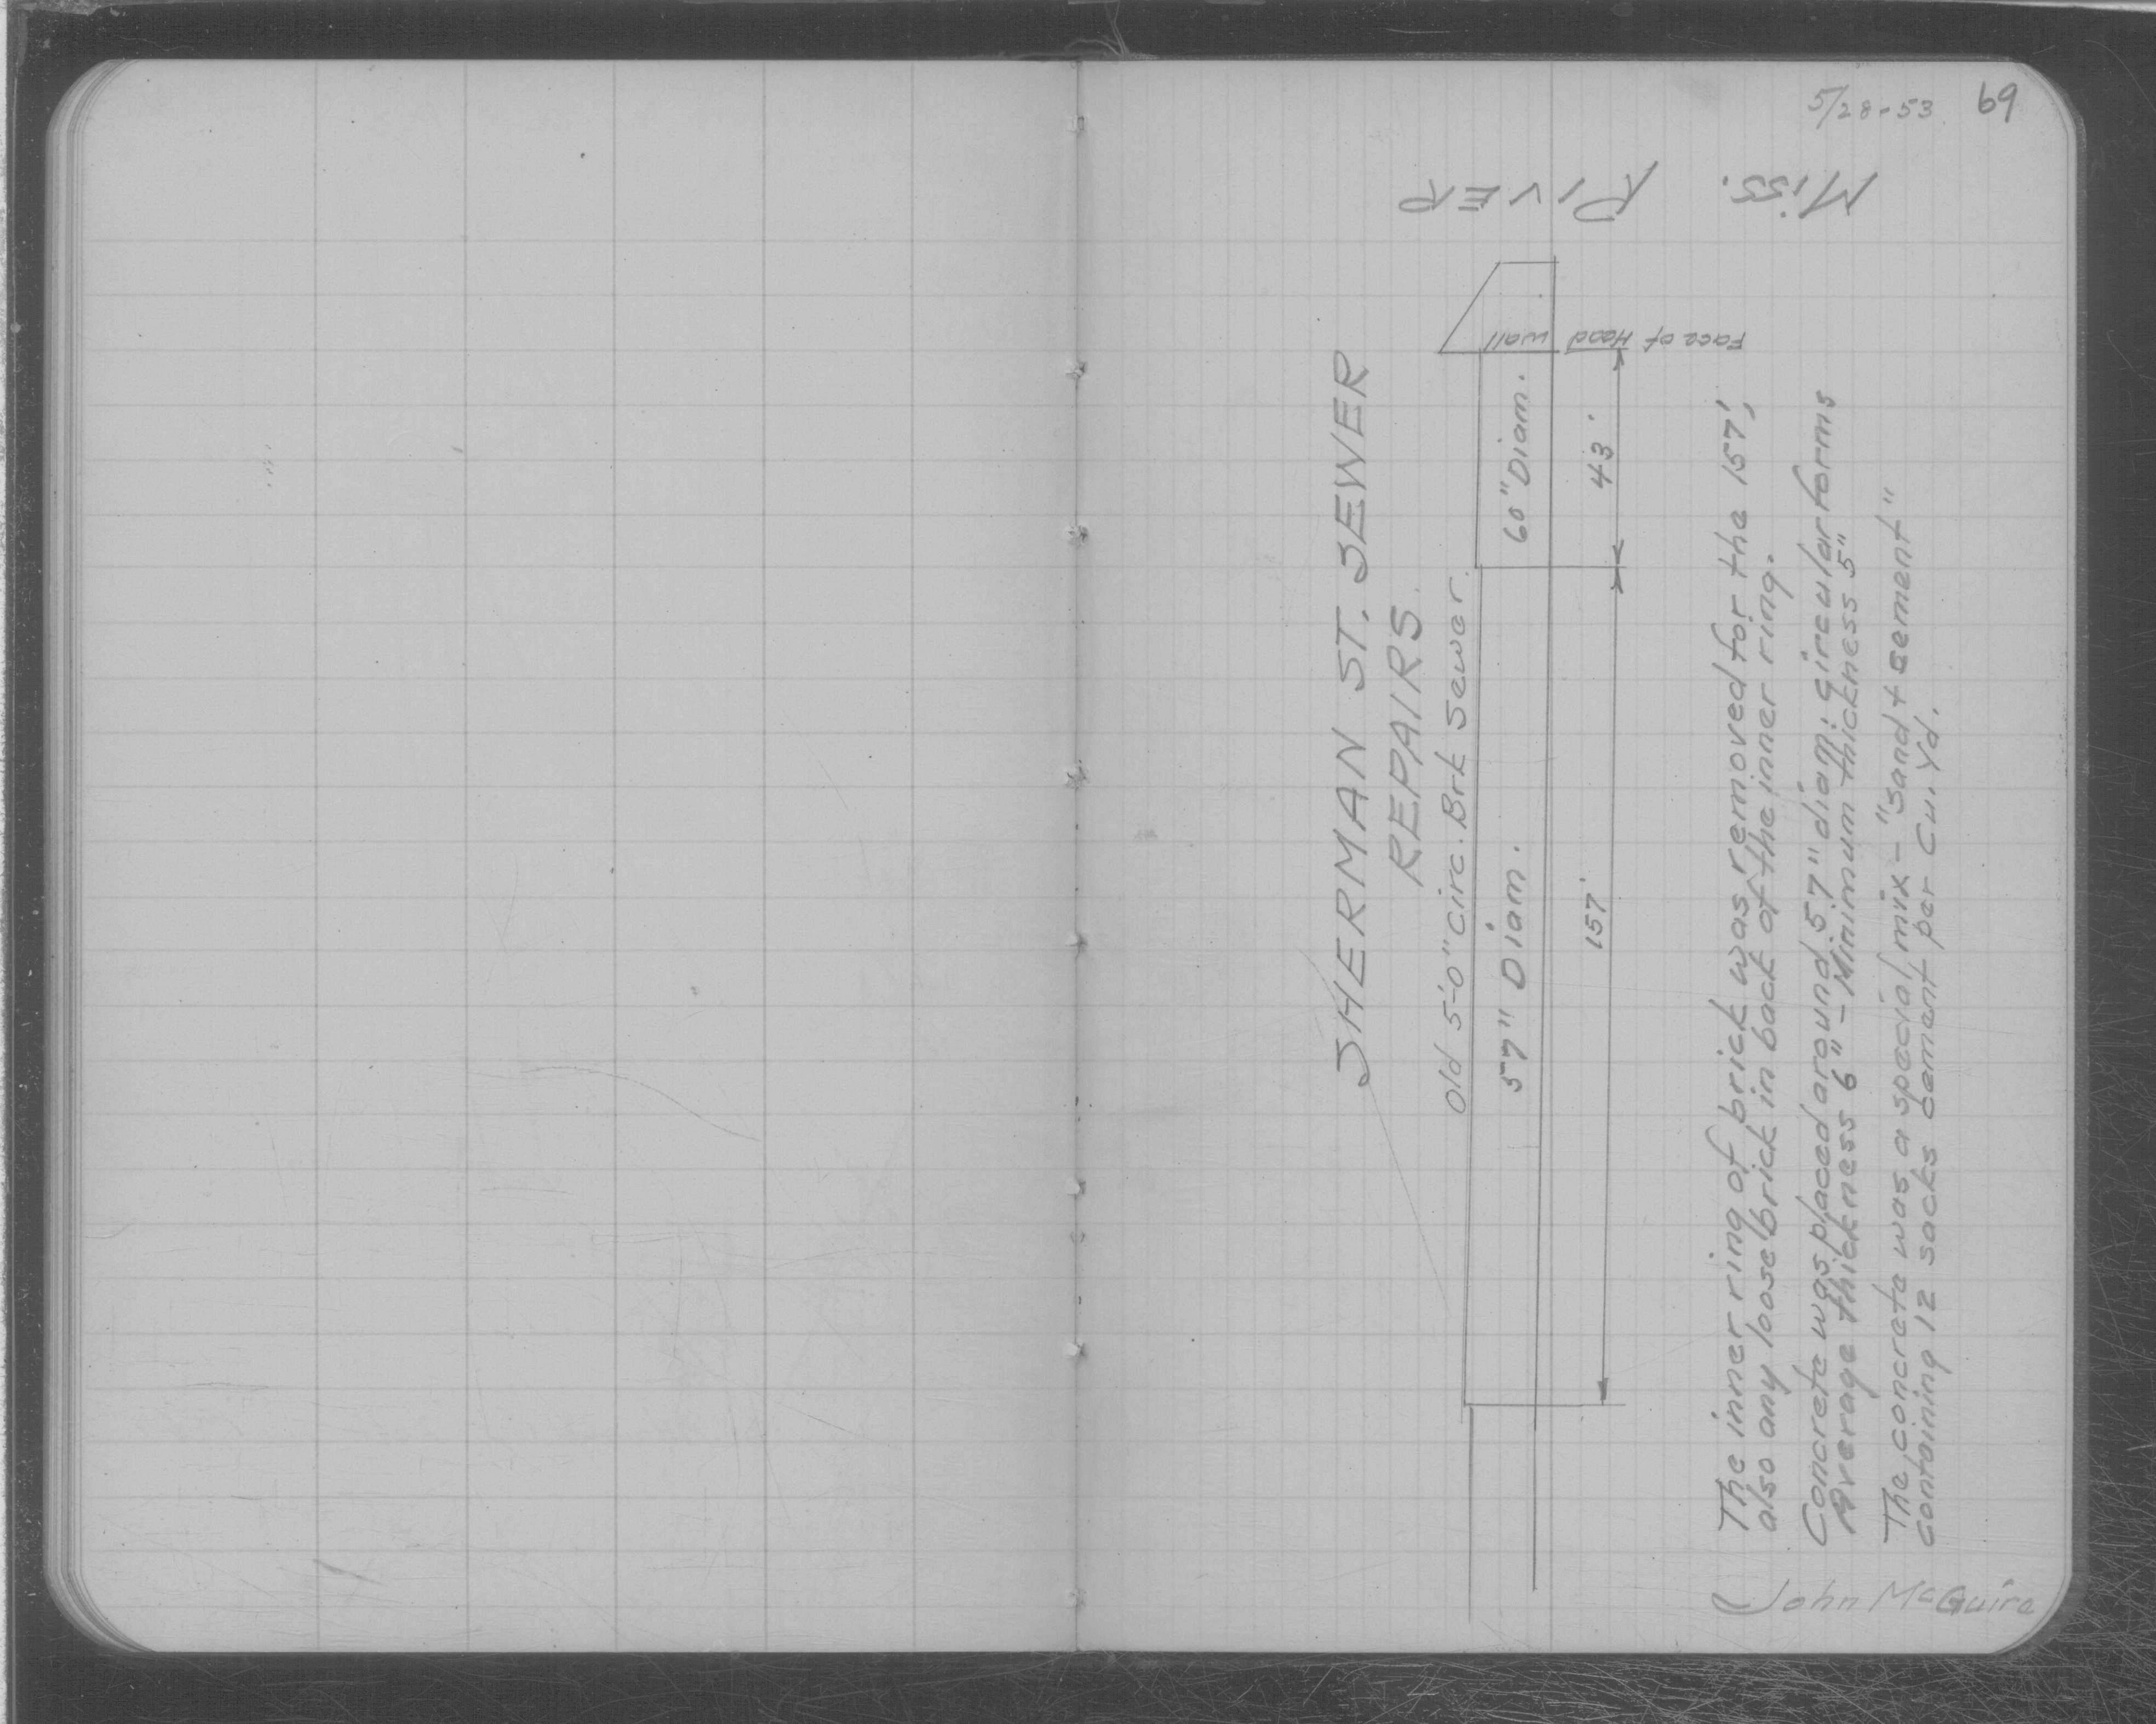 5/28-53 69
Miss. RIVER
SHERMAN ST. SEWER
REPAIRS.
Old 5'-0" Circ. Brk Sewer.
57" Diam.
60" Diam.
Face of Head wall
157'
43'
The inner ring of brick was removed for the 157',
also any loose brick in back of the inner ring.
Concrete was placed around 57" diam. circular forms
Average thickness 6" - Minimum thickness 5"
The concrete was a special mix - "Sand + cement"
containing 12 sacks cement per Cu. Yd.
John McGuire